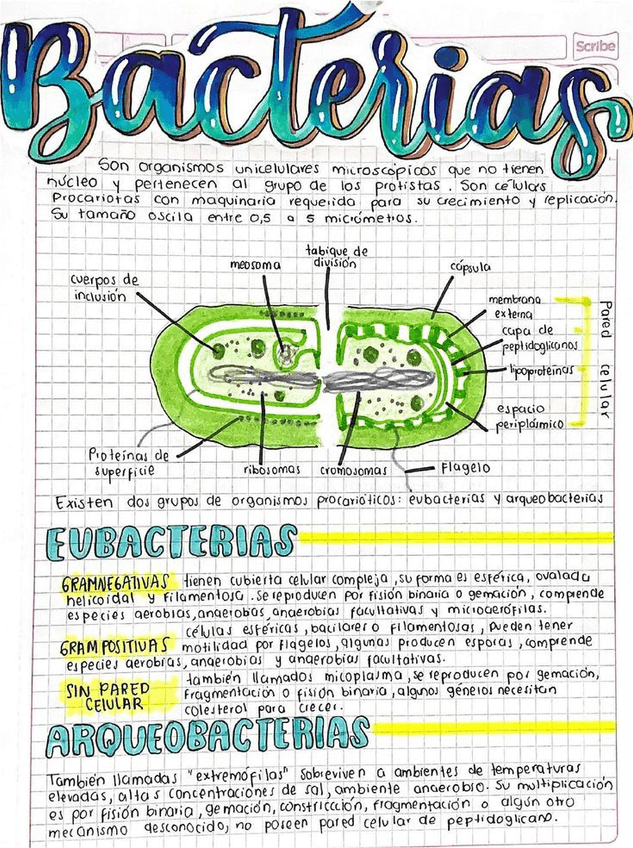 Scribe
Bacterias
Son organismos unicelulares microscópicos que no tienen
núcleo y pertenecen al grupo de los protistas. Son células
Procariotas con maquinaria requerida para su crecimiento y replicación.
Su tamaño oscila entre 0,5 a 5 micrómetros.
tabique de
división
meosoma
cápsula
cuerpos de
inclusión
membrana
externa
capa de
peptidoglicanos
lipoproteínas
espacio
periplásmico
Pared celular
Proteínas de
superficie
ribosomas
cromosomas
Flagelo
Existen dos grupos de organismos procarióticos: eubacterias y arqueobacterias
EUBACTERIAS
GRAMNEGATIVAS tienen cubierta celular compleja, su forma es esférica, ovalada
helicoidal y filamentosa. Se reproducen por fisión binaria o gemación, comprende
especies aerobias, anaerobias, anaerobias facultativas y microaerófilas.
células esféricas, bacilares o filamentosas, pueden tener
GRAMPOSITIVAS motilidad por flagelos, algunas producen esporas, comprende
especies aerobias, anaerobias y anaerobias facultativas.
también llamados micoplasma, se reproducen por gemación,
SIN PARED fragmentación o fisión binaria, algunos géneros necesitan
CELULAR colesterol para crecer.
ARQUEOBACTERIAS
También llamadas "extremófilas" sobreviven a ambientes de temperaturas
elevadas, altas concentraciones de sal, ambiente anaerobio. Su multiplicación
es por fisión binaria, gemación, constricción, fragmentación o algún otro
mecanismo desconocido, no poseen pared celular de peptidoglicano.